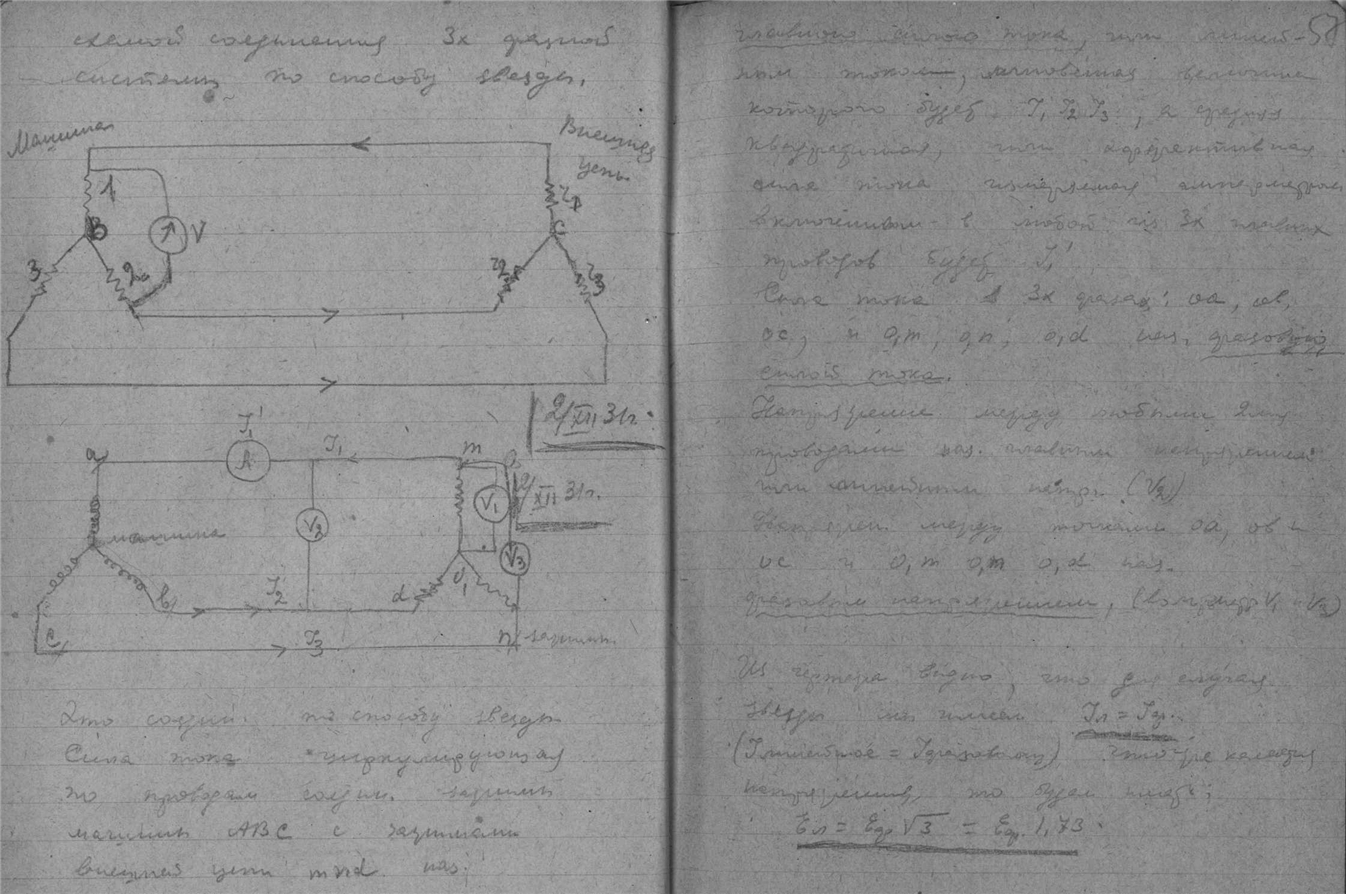 схемой соединения 3х фазной
системы по способу звезды.
Машина
Внешняя
цепь
1
V
B
3
2
r1
C
r2
r3
2/XII 31г.
a
I1'
A
I1
m
V2
V1
2/XII 31г.
V3
машина
b
I2
d
O1
c
I3
n
зажим.
Это соедин. по способу звезды
Сила тока циркулирующая
по проводам соедин. зажимы
машины АВС с зажимами
внешней цепи mnd наз.
58
главною силою тока, или линей-
ным током, мгновенная величина
которого будет I1 I2 I3, а средняя
квадратичная, или эффективная
сила тока, измеряемая амперметром
включенным в любой из 3х главных
проводов будет I1'
Сила тока в 3х фазах: оа, ов,
ос, и o,m, o,n, o,d наз. фазовой
силой тока.
Напряжение между любыми 2мя
проводами наз. главным напряжением
или линейным напряж. (V2)
Напряжен. между точками оа, ов и
ос и o,m o,m o,d наз.
фазовым напряжением, (вольтметр V1 и V3)
Из чертежа видно, что для случая
звезды мы имеем Iл = Iф.
(Iлинейное = Iфазовому) что же касается
напряжения, то будем иметь:
Eл = Eф √3 = Eф. 1,73.